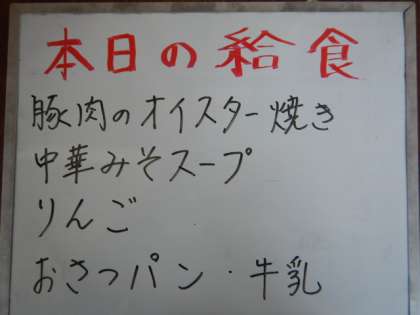 本日の給食
豚肉のオイスター焼き
中華みそスープ
りんご
おさつパン・牛乳